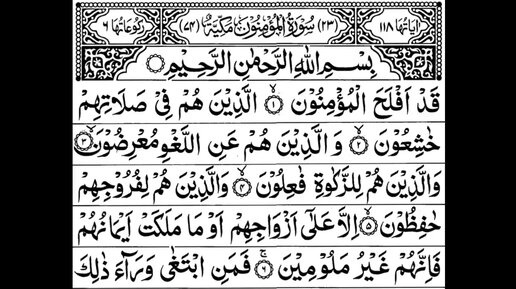 اٰیَاتُهَا ۱۱۸ (۲۳) سُوْرَةُ الْمُؤْمِنُوْنَ مَكِّیَّةٌ (۷۴) رُكُوْعَاتُهَا ۶
بِسْمِ اللّٰهِ الرَّحْمٰنِ الرَّحِیْمِ
قَدْ اَفْلَحَ الْمُؤْمِنُوْنَ ۙ۱ الَّذِیْنَ هُمْ فِیْ صَلَاتِهِمْ
خٰشِعُوْنَ ۙ۲ وَالَّذِیْنَ هُمْ عَنِ اللَّغْوِ مُعْرِضُوْنَ ۙ۳
وَالَّذِیْنَ هُمْ لِلزَّكٰوةِ فٰعِلُوْنَ ۙ۴ وَالَّذِیْنَ هُمْ لِفُرُوْجِهِمْ
حٰفِظُوْنَ ۙ۵ اِلَّا عَلٰۤی اَزْوَاجِهِمْ اَوْ مَا مَلَكَتْ اَیْمَانُهُمْ
فَاِنَّهُمْ غَیْرُ مَلُوْمِیْنَ ۚ۶ فَمَنِ ابْتَغٰی وَرَآءَ ذٰلِكَ